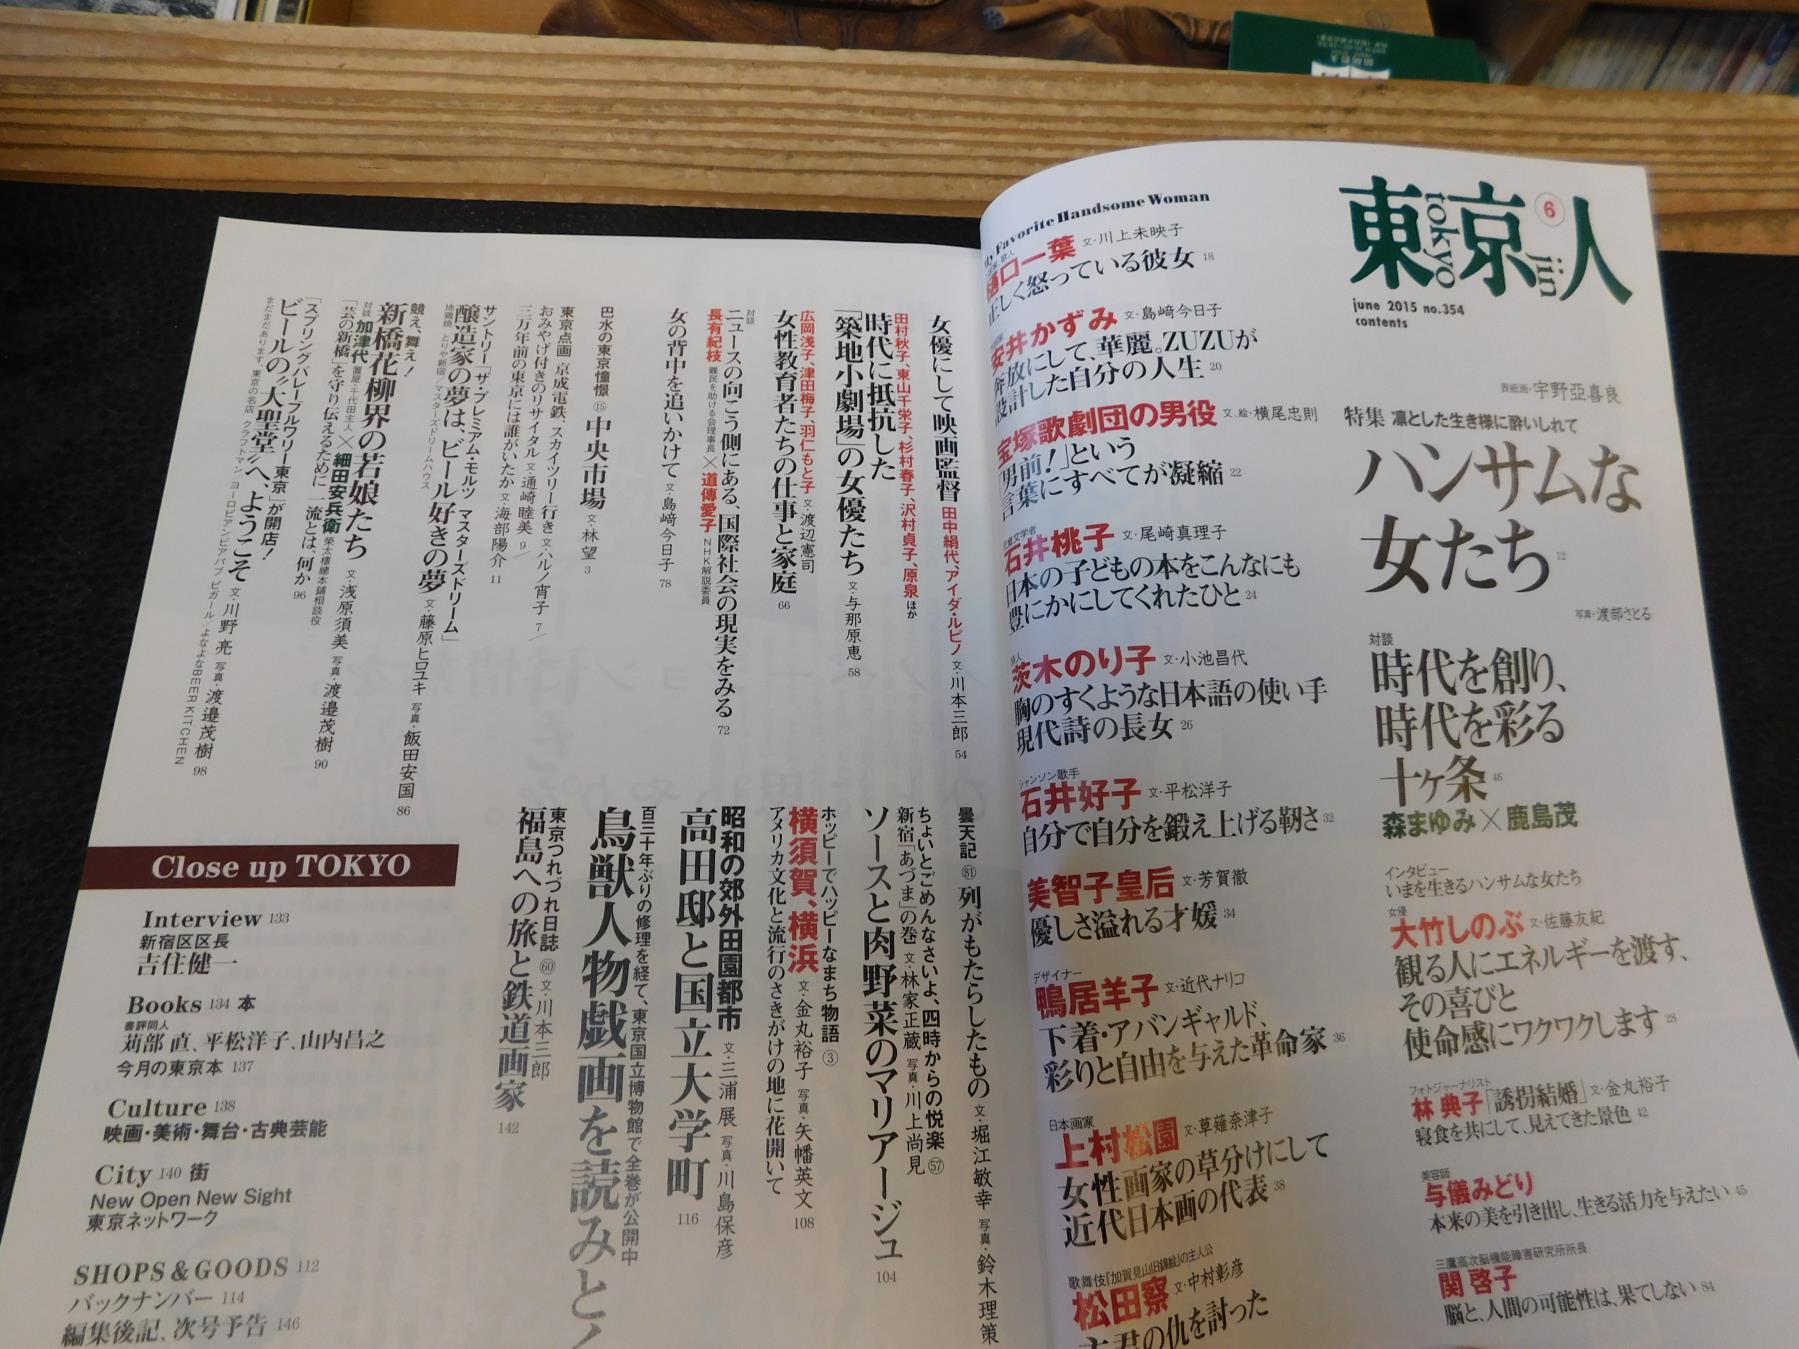 東京人
tokyo
jin
6
june 2015 no.354
contents
表紙画・宇野亞喜良
特集 凛とした生き様に酔いしれて
ハンサムな
女たち 12
写真・渡部さとる
対談
時代を創り、
時代を彩る
十ヶ条 46
森まゆみ×鹿島茂
インタビュー
いまを生きるハンサムな女たち
女優
大竹しのぶ 文・佐藤友紀
観る人にエネルギーを渡す、
その喜びと
使命感にワクワクします 28
フォトジャーナリスト
林 典子「誘拐結婚」 文・金丸裕子
寝食を共にして、見えてきた景色 42
美容師
与儀みどり
本来の美を引き出し、生きる活力を与えたい 45
三鷹高次脳機能障害研究所所長
関 啓子
脳と、人間の可能性は、果てしない 84
Favorite Handsome Woman
樋口一葉 文・川上未映子
正しく怒っている彼女 18
安井かずみ 文・島﨑今日子
奔放にして、華麗。ZUZUが
設計した自分の人生 20
宝塚歌劇団の男役 文、絵・横尾忠則
「男前!」という
言葉にすべてが凝縮 22
児童文学者
石井桃子 文・尾崎真理子
日本の子どもの本をこんなにも
豊にかにしてくれたひと 24
詩人
茨木のり子 文・小池昌代
胸のすくような日本語の使い手
現代詩の長女 26
シャンソン歌手
石井好子 文・平松洋子
自分で自分を鍛え上げる靭さ 32
美智子皇后 文・芳賀徹
優しさ溢れる才媛 34
デザイナー
鴨居羊子 文・近代ナリコ
下着・アバンギャルド、
彩りと自由を与えた革命家 36
日本画家
上村松園 文・草薙奈津子
女性画家の草分けにして
近代日本画の代表 38
歌舞伎『加賀見山旧錦絵』の主人公
松田察 文・中村彰彦
主君の仇を討った
女優にして映画監督 田中絹代、アイダ・ルピノ 文・川本三郎 54
田村秋子、東山千栄子、杉村春子、沢村貞子、原泉ほか
時代に抵抗した
「築地小劇場」の女優たち 文・与那原恵 58
広岡浅子、津田梅子、羽仁もと子 文・渡辺憲司
女性教育者たちの仕事と家庭 66
対談
ニュースの向こう側にある、国際社会の現実をみる 72
長有紀枝 難民を助ける会理事長 × 道傳愛子 NHK解説委員
女の背中を追いかけて 文・島﨑今日子 78
巴水の東京憧憬 ⑮ 中央市場 文・林望 3
東京点画 京成電鉄、スカイツリー行き 文・ハルノ宵子 7/
おみやげ付きのリサイタル 文・通崎睦美 9/
三万年前の東京には誰がいたか 文・海部陽介 11
サントリー「ザ・プレミアム・モルツ マスターズドリーム」
醸造家の夢は、ビール好きの夢 文・藤原ヒロユキ 写真・飯田安国 86
地鶏焼 とりや新宿/マスターズドリームハウス
競え、舞え!
新橋花柳界の若娘たち 文・浅原須美 写真・渡邉茂樹 90
対談 加津代 置屋・千代田主人 × 細田安兵衛 榮太樓總本鋪相談役
「芸の新橋」を守り伝えるために 一流とは、何か 96
「スプリングバレーブルワリー東京」が開店!
ビールの“大聖堂”へ、ようこそ 文・川野亮 写真・渡邉茂樹 98
まだまだあります、東京の名店 クラフトマン/ヨーロピアンビアパブ ピガール/よなよなBEER KITCHEN
曇天記 81 列がもたらしたもの 文・堀江敏幸 写真・鈴木理策
ちょいとごめんなさいよ、四時からの悦楽 57
新宿「あづま」の巻 文・林家正蔵 写真・川上尚見
ソースと肉野菜のマリアージュ 104
ホッピーでハッピーなまち物語 ③
横須賀、横浜 文・金丸裕子 写真・矢幡英文
アメリカ文化と流行のさきがけの地に花開いて 108
昭和の郊外田園都市 文・三浦展 写真・川島保彦
高田邸と国立大学町 116
百三十年ぶりの修理を経て、東京国立博物館で全巻が公開中
鳥獣人物戯画を読みと
東京つれづれ日誌 60 文・川本三郎
福島への旅と鉄道画家 142
Close up TOKYO
Interview 133
新宿区区長
吉住健一
Books 134 本
書評同人
苅部 直、平松洋子、山内昌之
今月の東京本 137
Culture 138
映画・美術・舞台・古典芸能
City 140 街
New Open New Sight
東京ネットワーク
SHOPS & GOODS 112
バックナンバー 114
編集後記、次号予告 146